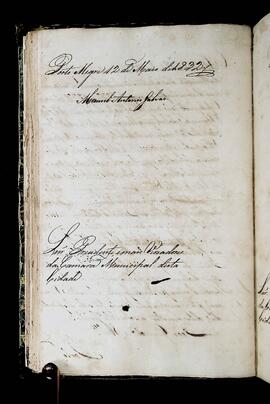 Porto Alegre 12 de Maio de 1832
Manoel Antonio Galvão
Snrs Presidente, e mais Vereadores
da Camara Municipal desta
Cidade